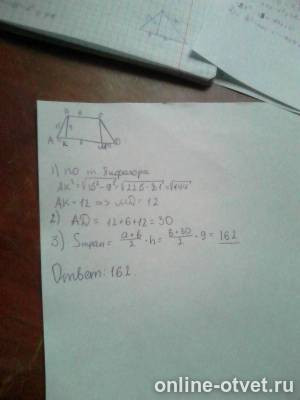 B 6 C
15 9
A K 6 M D
1) по т. Пифагора
AK² = √15² - 9² = √225 - 81 = √144
AK = 12 => MD = 12
2) AD = 12 + 6 + 12 = 30
3) Sтрап = a+b/2 · h = 6+30/2 · 9 = 162
Ответ: 162.
online-otvet.ru